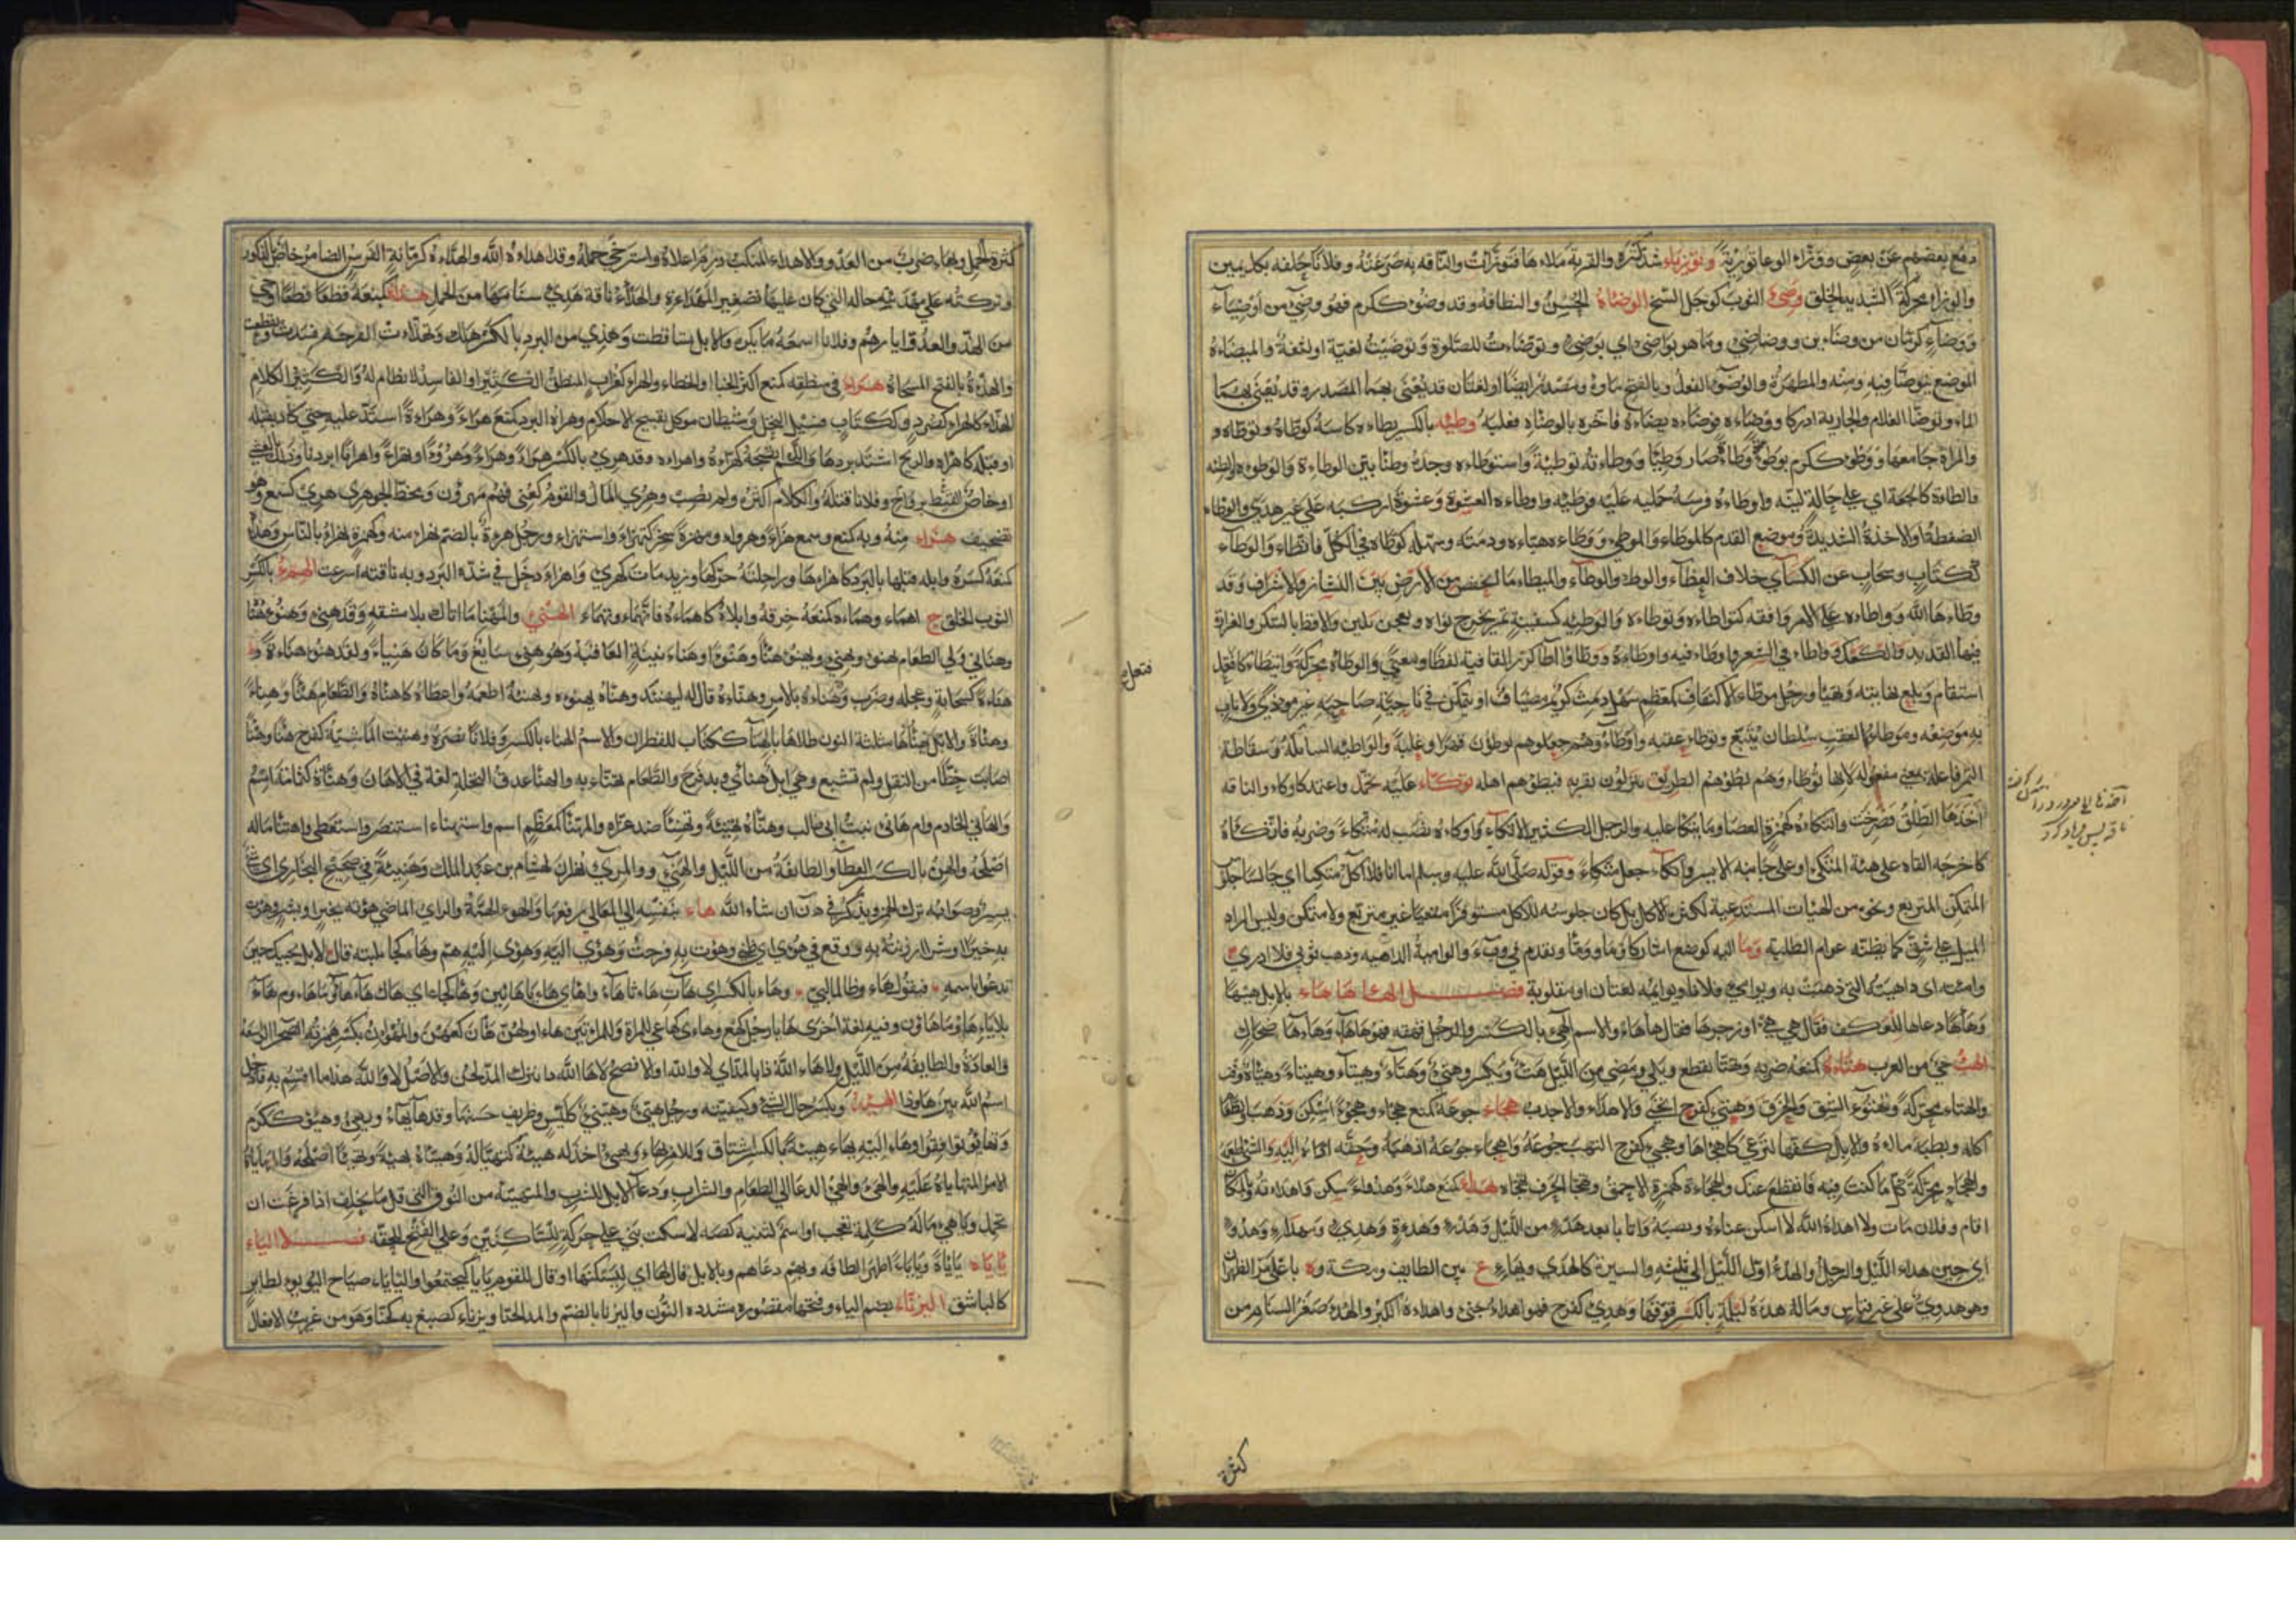 دفع بعضهم عن بعض ووزاء الوعا توزئة وتوزيأ شد كنزه والقربة ملاها فتوزأت والناقة به صرعته وفلانا حلفه بكل يمين
والوزأ محركة الشديد الخلق وصئ الثوب كوجل اتسخ الوضاءة الحسن والنظافة وقد وضؤ ككرم فهو وضئ من اوضياء
ووضاء كرمان من وضائين ووضاضئ وما هو بواضئ اي بوضئ وتوضأت للصلوة وتوضيت لغية او لثغة والميضاة
الموضع يتوضأ فيه ومنه والمطهرة والوضوء الفعل وبالفتح ماؤه ومصدر ايضا او لغتان قد يعنى بهما المصدر وقد يعنى بهما
الماء وتوضأ الغلام والجارية ادركا وواضاءه فوضاءه يضاءه فاخره بالوضاءة فغلبه وطئه بالكسر يطاءه داسه كوطاه وتوطاه و
والمراة جامعها ووطؤ ككرم يوطؤ وطاءة صار وطيا ووطاءته توطية واستوطاءه وجده وطئا بين الوطاءة والوطوءة والطئة
والطاءة كالجعة اي على حالة لينة واوطاءه فرسه حمله عليه فوطئه واوطاءه العشوة وعشوة اركبه على غير هدي والوطاء
الضغطة او الاخذة الشديدة وموضع القدم كالموطاء والموطئ ووطاءه هياءه ودمثه وسهله كوطاه في الكل فاتطاء والوطاء
ككتاب وسحاب عن الكسائي خلاف الغطاء والوطء والوطاء والميطاء ما انخفض من الارض بين النشاز والاشراف وقد
وطاءها الله وواطاءه على الامر وافقه كتواطاءه وتوطاءه والوطيئة كسفينة تمر يخرج نواه ويعجن بلبن والاقط بالسكر والغرارة
فيها القديد والكعك وواطاء في الشعر واوطاء فيه واوطاءه ووطأ وآطا كرر القافية لفظا ومعنى والوطاة محركة وايتطاء كافتعل
استقام وبلغ نهايته وتهيا ورجل موطاء الاكناف كمعظم سهل دمث كريم مضياف او يتمكن في ناحيته صاحبه غير موذي ولا ناب
به موضعه وموطاء العقب سلطان يتبع وتوطاء عقبه واوطاؤه وهم جعلوهم يوطؤن قهرا وغلبة والواطئة السابلة وسقاطة
التمر فاعلة بمعنى مفعولة لانها توطاء وهم يطؤهم الطريق ينزلون بقربه فيطؤهم اهله توكاء عليه تحمل واعتمد كاوكاء والناقة
اخذها الطلق فصرخت والتكاءة كهمزة العصا وما يتكا عليه والرجل الكثير الاتكاء واوكاءه نصب له متكاء وضربه فاتكئاه
كاخرجه القاه على هيئة المتكئ او على جانبه الايسر واتكاء جعل متكاء وقوله صلى الله عليه وسلم اما انا فلا آكل متكئا اي جالسا جلوس
المتمكن المتربع ونحوه من الهيئات المستدعية لكثرة الاكل بل كان جلوسه للاكل مستوفزا مقعيا غير متربع ولا متمكن وليس المراد
الميل على شق كما يظنه عوام الطلبة ومأ اليه كوضع اشار كاومأ وومأ وتقدم في وبء والوامية الداهية وذهب ثوبي فلا ادري
وامئته اي داهيته التي ذهبت به ويوامئ فلانا ويوائمه لغتان او مقلوبة فصل الهاء هاهاء بالابل هيها
وهاها دعاها للعلف فقال هي هي او زجرها فقال هاهاء والاسم الهئ بالكسر والرجل قهقه فهو هاها وهاهاء ضحاك
الهبء حي من العرب هتاءه كمنعه ضربه وتهتا تقطع وبلي ومضى من الليل هتء ويكسر وهتئ وهتاء وهيتاء وهيتاء وهيتاة وقت
والهتاء محركة وهتوء الشق والخرق وهتئ كفرح انحنى والاهتاء والاحدب هجاء جوعه كمنع هجاء وهجوءا سكن وذهب والطعام
اكله وبطنه ملاه والابل كفها لترعى كاهجاها وهجئ كفرح التهب جوعه واهجاء جوعه اذهبه وحقه اداه اليه والشي اطعمه
والهجاء محركة كل ما كنت فيه فانقطع عنك والهجاءة كهمزة الاحمق وهجا الحرف تهجاه هداء كمنع هداء وهدوء سكن واهداءته وبالمكان
اقام وفلان مات ولا اهداه الله لا اسكن عناءه ونصبه واتانا بعد هدء من الليل وهدء وهداة وهدئ ومهدا وهدوء
اي حين هداء الليل والرجل والهدء اول الليل الى ثلثه والسيرة كالهدي وبهاء ع بين الطايف ومكة وة باعلى مر الظهران
وهو هدوي على غير قياس وماله هدءة ليلة بالكسر قوتها وهدئ كفرح فهو اهداء جنئ واهداءه الكبر والهداء صغر السنام من
كثرة
افتد ناله
ناقه بس فرياد كرد
فتعل
كثرة الحمل وبهاء ضرب من العدو والاهداء المنكب درم اعلاه واسترخى حمله وقد اهداه الله والهداءة كرمانة الفرس الضامر خاص بالذكور
وتركته على مهيدئته حاله التي كان عليها تصغير المهداءة والهداء ناقة هدئ سنامها من الحمل هذاء كمنعه قطعه قطعا اوحى
من الهذ والعدو ابارهم وفلانا اسمعه ما يكره والابل تساقطت وهذئ من البرد بالكسر هلك وتهذات القرحة فسدت وتقطعت
والهذاة بالفتح المسحاة هراء في منطقه كمنع اكثر الخنا او الخطاء والهراء كغراب المنطق الكثير او الفاسد لا نظام له والكثير الكلام
الهذاء كالهراء كصرد وككتاب فسيل النخل وشيطان موكل بقبيح الاحلام وهراه البرد كمنع هراء وهراءة اشتد عليه حتى كاد يقتله
او قتله كاهراه والريح اشتد بردها واللحم انضجه كهراءه واهراءه وقد هرئ بالكسر هراء وهراء وهروءا وتهراء واهرانا ابردنا وذلك بالعشي
او خاص بالقيظ وفلانا قتله والكلام اكثره ولم يصب وهرئ المال والقوم كعني فهم مهرؤن وبخط الجوهري هرئ كسمع وهو
تصحيف هزاء منه وبه كمنع وسمع هزاء وهزءا ومهزاة سخر كتهزاء واستهزاء ورجل هزءة بالضم يهزاء منه وكهمزة يهزاء بالناس وهزاه
كمنعه كسره وابله قتلها بالبرد كاهزاها وراحلته حركها وزيد مات كهزئ واهزاء دخل في شدة البرد وبه ناقته اسرعت الهمء بالكسر
الثوب الخلق ج اهماء وهماءه كمنعه خرقه وابلاه كاهماءه فانهماء وتهماء الهنئ والمهنا ما اتاك بلا مشقة وقد هنئ وهنوء هنأ
وهنأني ولي الطعام يهنأ ويهنئ ويهنؤ هنأ وهنأ وهناء هنيئة العافية وهو هنئ سايغ وما كان هنيئا ولقد هنؤ هناءة و
هناءة كسحابة وعجله وضرب وهناءه بالامر وهناءه قال له ليهنئك وهناه يهنؤه ويهنئه اطعمه واعطاه كاهناه والطعام هنأ وهناء
وهناءة والابل يهنأها مثلثة النون طلاها بالهناء ككتاب للقطران والاسم الهناء بالكسر وفلانا نصره وهنئت الماشية كفرح هنأ وهنأ
اصابت حظا من البقل ولم تشبع وهي ابل هناءي وبه فرح والطعام تهناء به والهناء عذق النخلة لغة في الاهان وهناءة كثمامة اسم
والهانئ الخادم وام هانئ بنت ابي طالب وهناه تهنئة وتهنيئا ضد عزاه والمهنا كمعظم اسم واستهناء استنصر واستعطى واهتنا ماله
اصلحه والهنء بالكسر العطاء والطائفة من الليل والهنئ والمرئ نهران لهشام بن عبد الملك وهنيئة في صحيح البخاري اي شئ
يسير وصوابه ترك الهمز ويذكر في ه ن و ان شاء الله هاء بنفسه الى المعالي رفعها والهوء الهمة والراي الماضي هؤته بخير او بشر وهؤت
به خيرا او شرا ازننته به ووقع في هوئي اي ظني وهؤت به فرحت وهوئ اليه وهؤي اليه هم وهاء كجاء تلبية قال لا بل يجيبك حين
تدعو باسمه فيقول هاء وطالما لبى وهاء بالكسر اي هات هاء تاهاء وهاي هاء يا هائين وهاء كجاء اي هاك هاء هاؤما هاء وم هاء
بلا ياء هاؤما هاؤن وفيه لغة اخرى هاء يا رجل كهع وهاءي كهاعي للمراة وللمراتين هاءا ولهن هان كهعن والمهوان بكسر همزته الصحراء الواسعة
والعادة والطايفة من الليل ولا هاء الله ذا بالمد اي لا والله او الافصح لا ها الله ذا بترك المد لحن والاصل لا والله هذا ما اقسم به فادخل
اسم الله بين ها وذا الهيئة ويكسر حال الشئ وكيفيته ورجل هئ وهيئ ككيس وظريف حسنها وقد هاء يهاء ويهئ وهيؤ ككرم
وتهايؤا توافقوا وهاء اليه يهاء هيئة بالكسر اشتاق وللامر يهاء ويهئ اخذ له هيئته كتهيا له وهياه تهيئة وتهييا اصلحه والمهاياة
الامر المتهايا عليه والهئ والهئ الدعا الى الطعام والشراب ودعاء الابل للشرب والمتهيئة من النوق التي قل ما تخلف اذا قرعت ان
تحمل ويا هئ مالي كلمة تعجب او اسم لتنبه كصه لاسكت بني على حركة للساكنين وعلى الفتح للخفة فصل الياء
يأيأه يأيأة ويأياء اظهر الطافه وبهم دعاهم وبالابل قال لها اي ليسكنها او قال للقوم يايا ليجتمعوا واليايأ صياح اليؤيؤ لطاير
كالباشق اليرناء بضم الياء وفتحها مقصورة مشددة النون واليرنا بالضم والمد الحنا ويرناء كصبغ به كحنا وهو من غريب الافعال